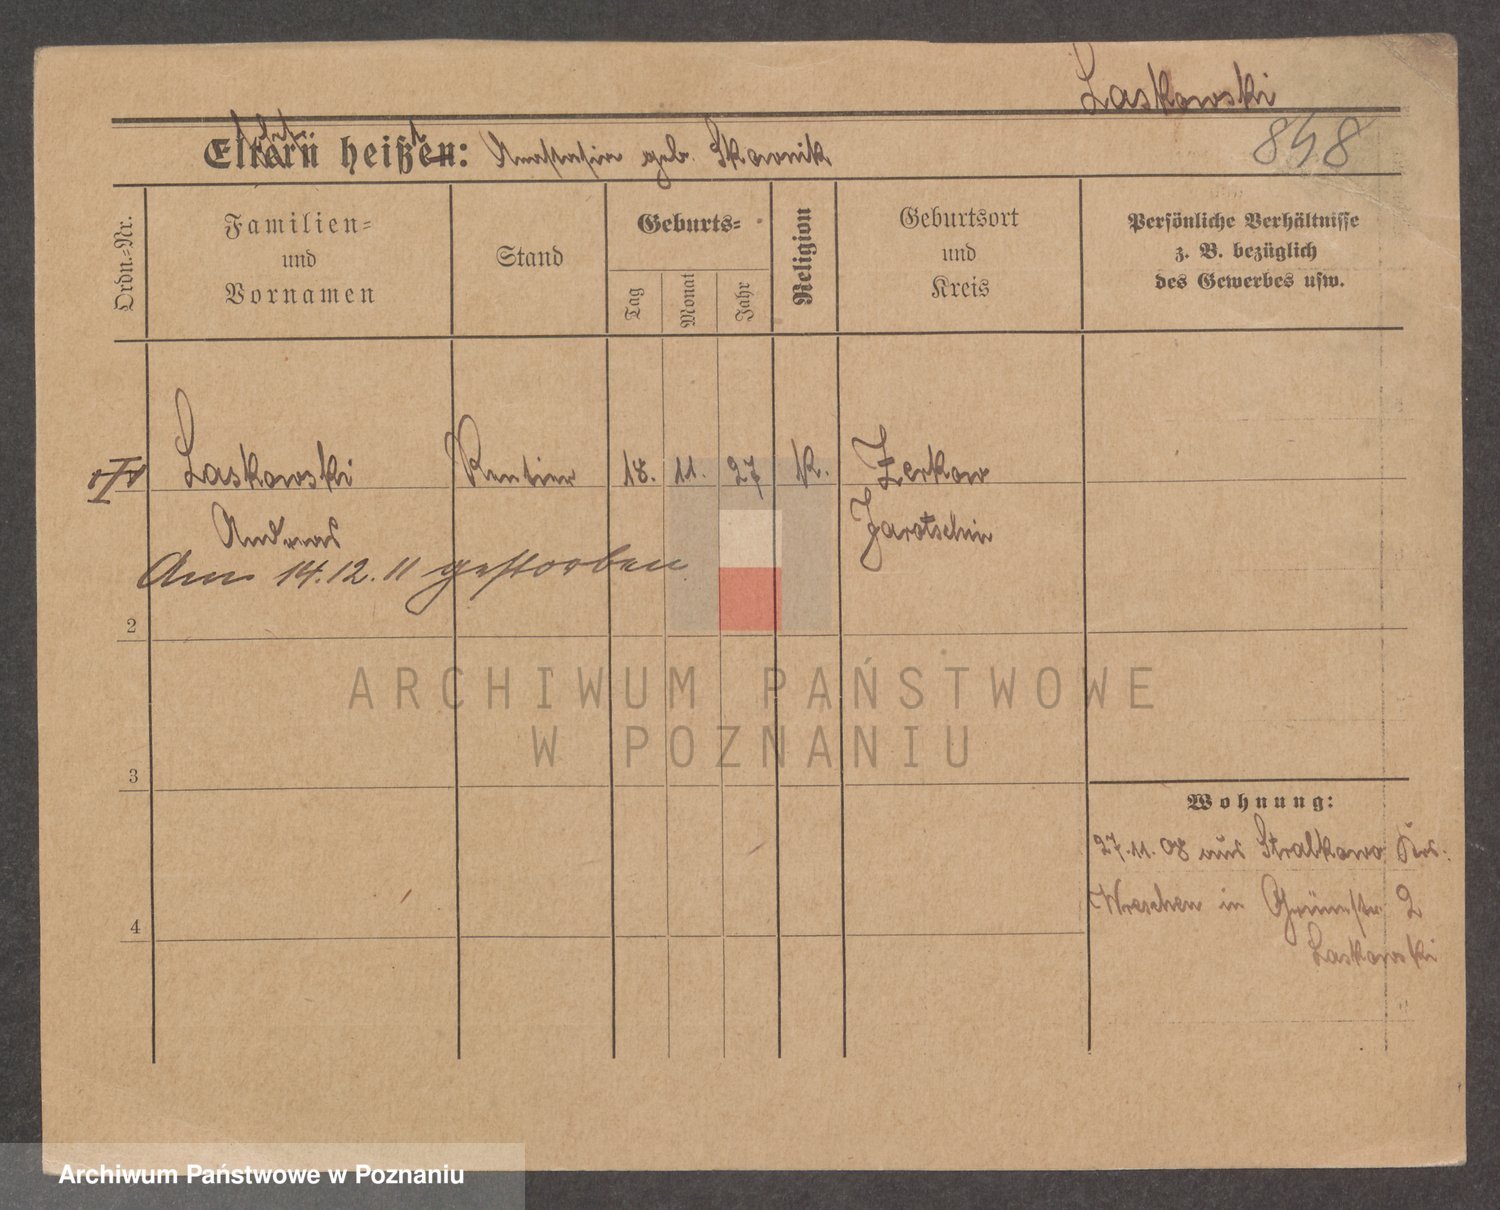 Laskowski
848
Eltern heißen: Anastasia geb. Skownik
Ordn.-Nr.
Familien-
und
Vornamen
Stand
Geburts-
Tag
Monat
Jahr
Religion
Geburtsort
und
Kreis
Persönliche Verhältnisse
z. B. bezüglich
des Gewerbes usw.
Laskowski Rentier 18. 11. 27 K. Zerkow
Andreas Jarotschin
Am 14.12.11 gestorben
2
ARCHIWUM PAŃSTWOWE
W POZNANIU
3
Wohnung:
27.11.08 aus Stralkowo Krs.
4
Wreschen in Grünstr 2
Laskowski
Archiwum Państwowe w Poznaniu